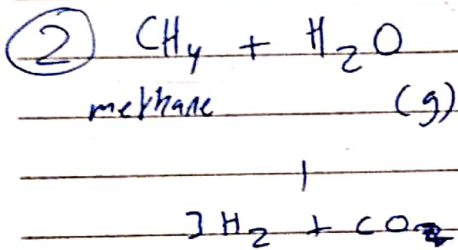 ② CH₄ + H₂O
methane (g)
3H₂ + CO